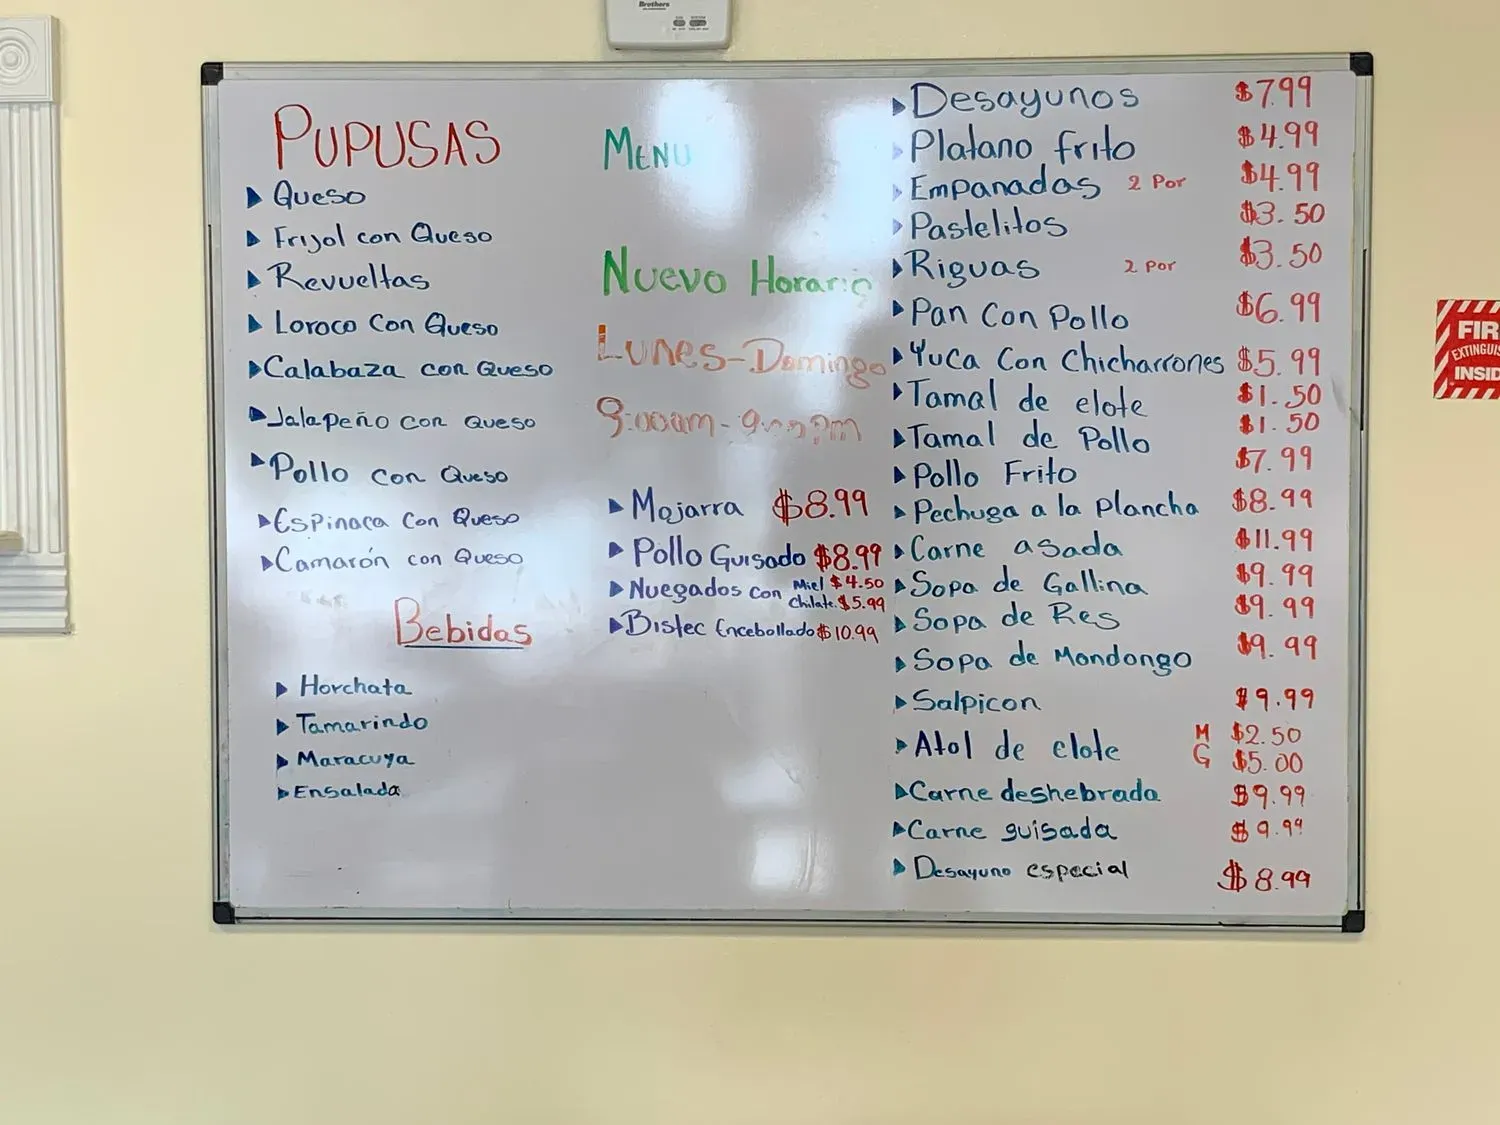 Brothers
PUPUSAS
Queso
Frijol con Queso
Revueltas
Loroco Con Queso
Calabaza con Queso
Jalapeño con Queso
Pollo con Queso
Espinaca Con Queso
Camarón con Queso
Bebidas
Horchata
Tamarindo
Maracuya
Ensalada
MENU
Nuevo Horario
Lunes-Domingo
Mojarra $8.99
Pollo Guisado $8.99
Nuegados con Miel $4.50
Chilate $5.99
Bistec Encebollado $10.99
Desayunos $7.99
Platano frito $4.99
Empanadas 2 Por $4.99
Pastelitos $3.50
Riguas 2 Por $3.50
Pan Con Pollo $6.99
Yuca Con Chicharrones $5.99
Tamal de elote $1.50
Tamal de Pollo $1.50
Pollo Frito $7.99
Pechuga a la Plancha $8.99
Carne asada $11.99
Sopa de Gallina $9.99
Sopa de Res $9.99
Sopa de Mondongo $9.99
Salpicon $9.99
Atol de elote M $2.50
G $5.00
Carne deshebrada $9.99
Carne guisada $9.99
Desayuno especial $8.99
FIR
EXTINGUIS
INSID